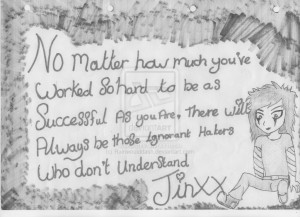 No Matter how much you've
Worked So hard to be as
Successful As you Are, There will
Always be those Ignorant Haters
Who don't Understand
Jinxx